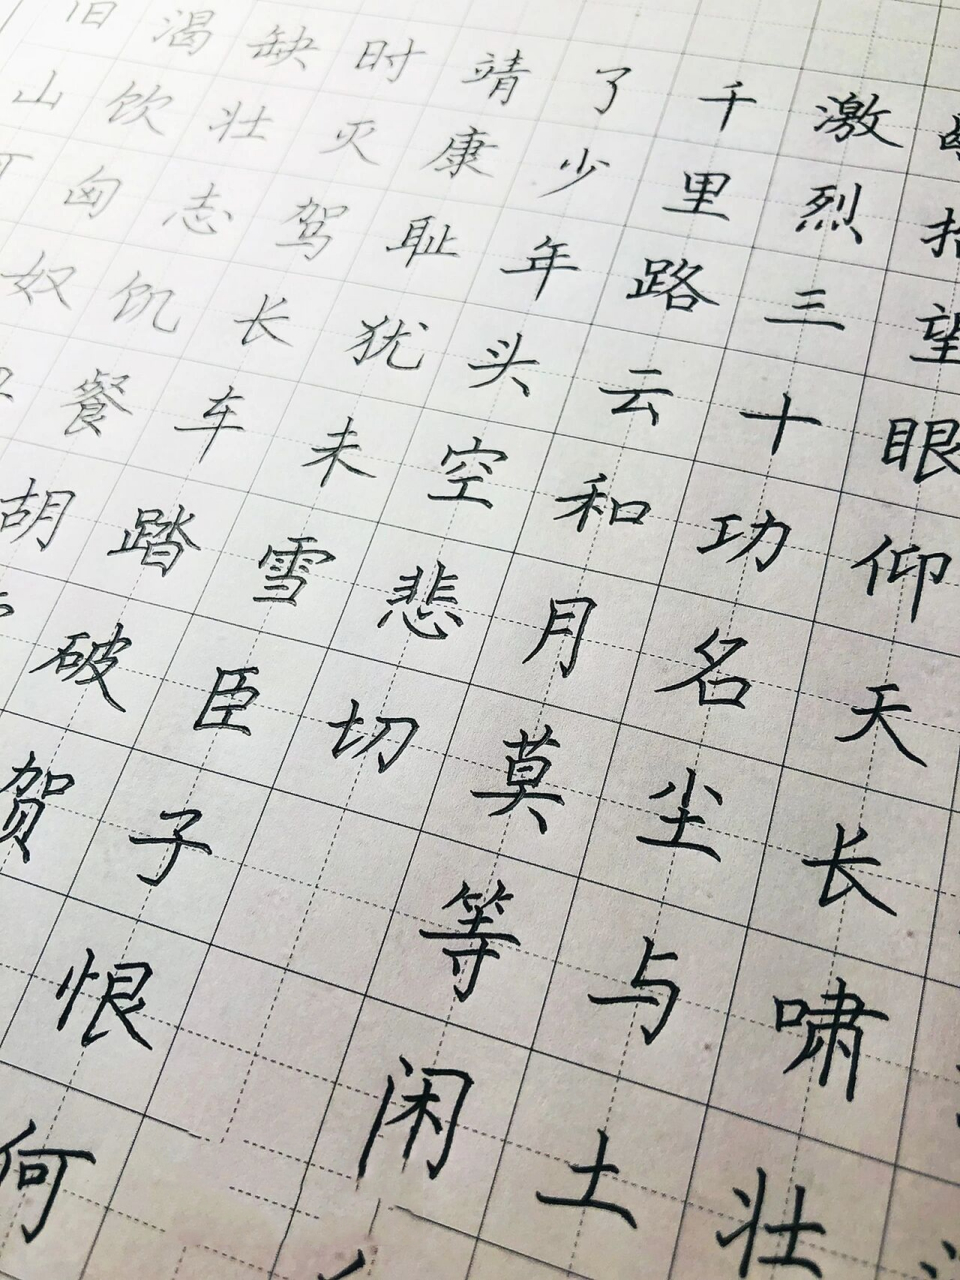 抬望眼仰天长啸壮
激烈三十功名尘与土
千里路云和月莫等闲
了少年头空悲切
靖康耻犹未雪臣子恨何
时灭驾长车踏破贺
缺壮志饥餐胡
渴饮匈奴
旧山